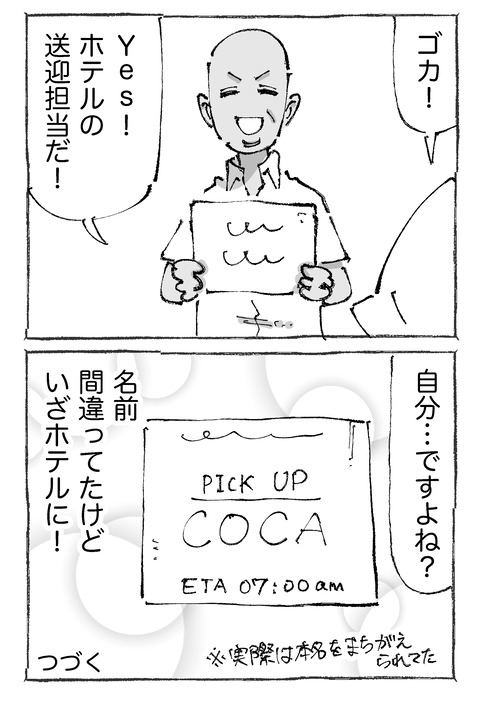 ゴカ！
Yes！
ホテルの
送迎担当だ！
自分…ですよね？
PICK UP
COCA
ETA 07:00am
名前
間違ってたけど
いざホテルに！
※実際は本名をまちがえ
られてた
つづく